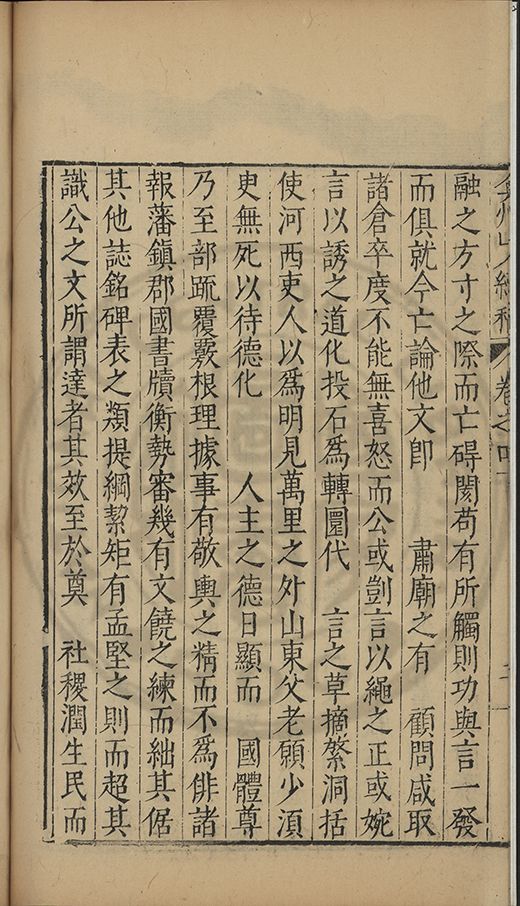 弇州山人續稿 卷之四
融之方寸之際而亡碍閡苟有所觸則功與言一發
而俱就今亡論他文卽 肅廟之有 顧問咸取
諸倉卒度不能無喜怒而公或剴言以繩之正或婉
言以誘之道化投石爲轉圜代 言之草摛繁洞括
使河西吏人以爲明見萬里之外山東父老願少湏
臾無死以待德化 人主之德日顯而 國體尊
乃至部䟽覆覈根理據事有敬輿之精而不爲俳諸
報藩鎮郡國書牘衡勢審幾有文饒之練而絀其倨
其他誌銘碑表之類提綱絜矩有孟堅之則而超其
識公之文所謂達者其效至於奠 社稷潤生民而